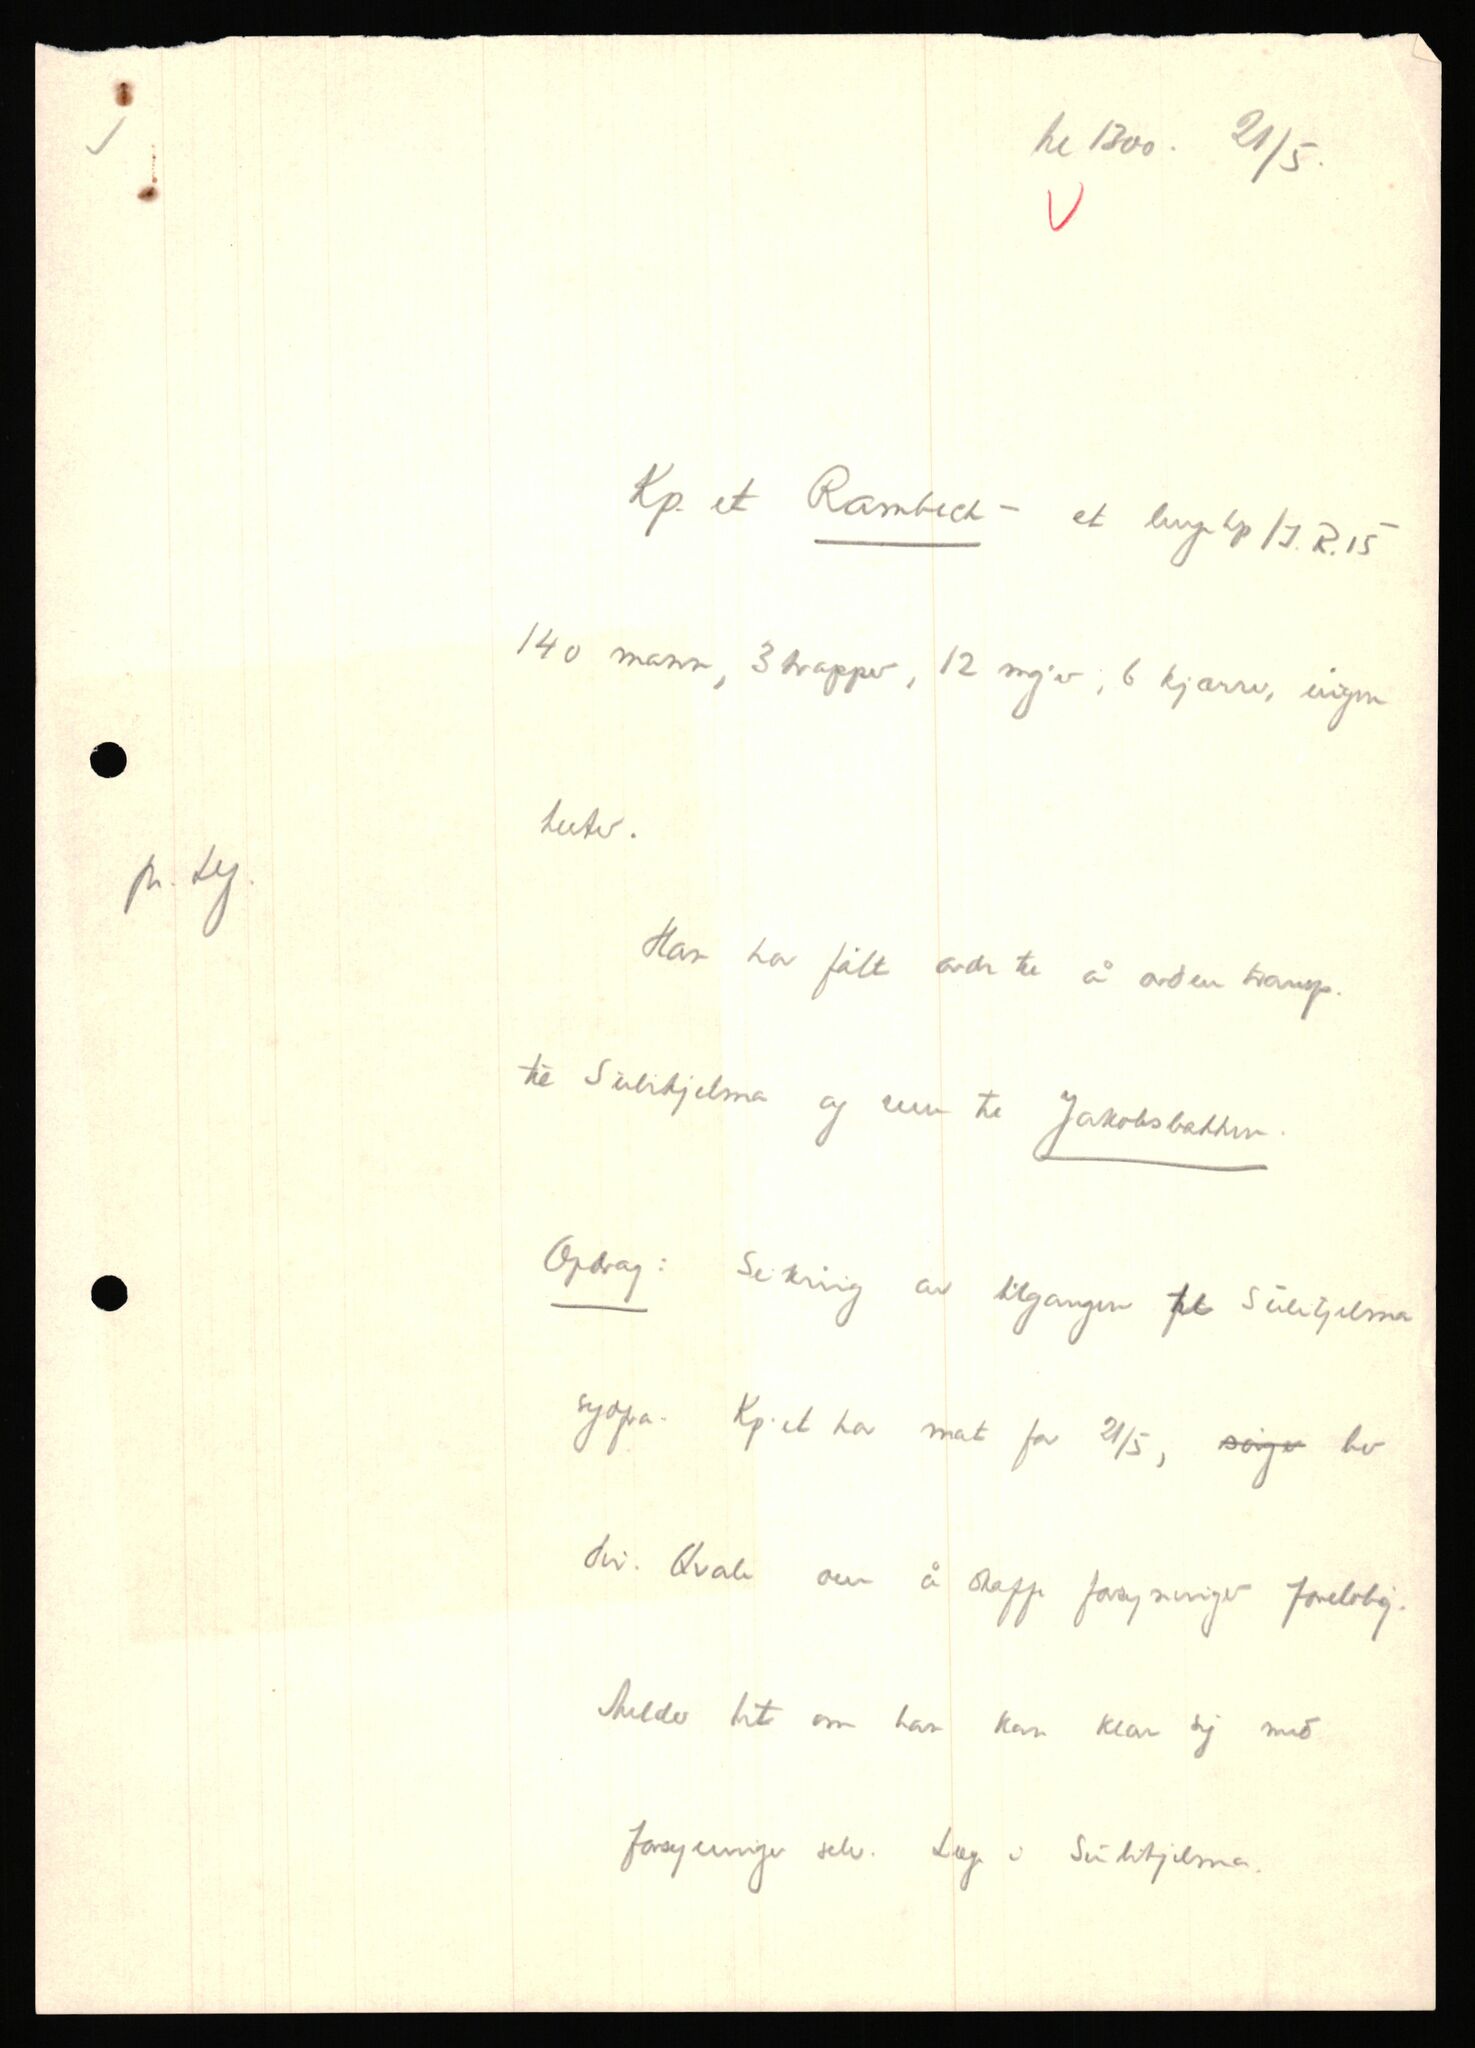 kl 1300. 21/5.
Kp. et Rambech - et kp / I.R. 15
140 mann, 3 tropper, 12 mg'er, 6 kjærrer, ingen
hester.
Han har fått ordre til å ordne transp.
til Sulitjelma og til Jakobsbakken.
Opdrag: Sikring av tilgangen til Sulitjelma
sydfra. Kp. et har mat for 21/5, sørger ber
dir. Qvale om å skaffe forsyninger foreløbig.
Melder hit om han kan klare sig med
forsyninger selv. Læge i Sulitjelma.